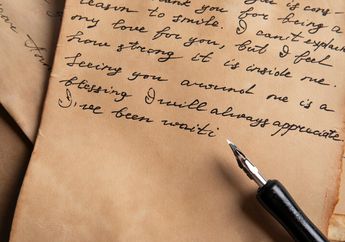 you is cons
reason to smile. Thank you for being a
only love for you, but I can't explain
how strong it is inside me. I feel
Seeing you around me is a
blessing I will always appreciate
I,ve been waiti